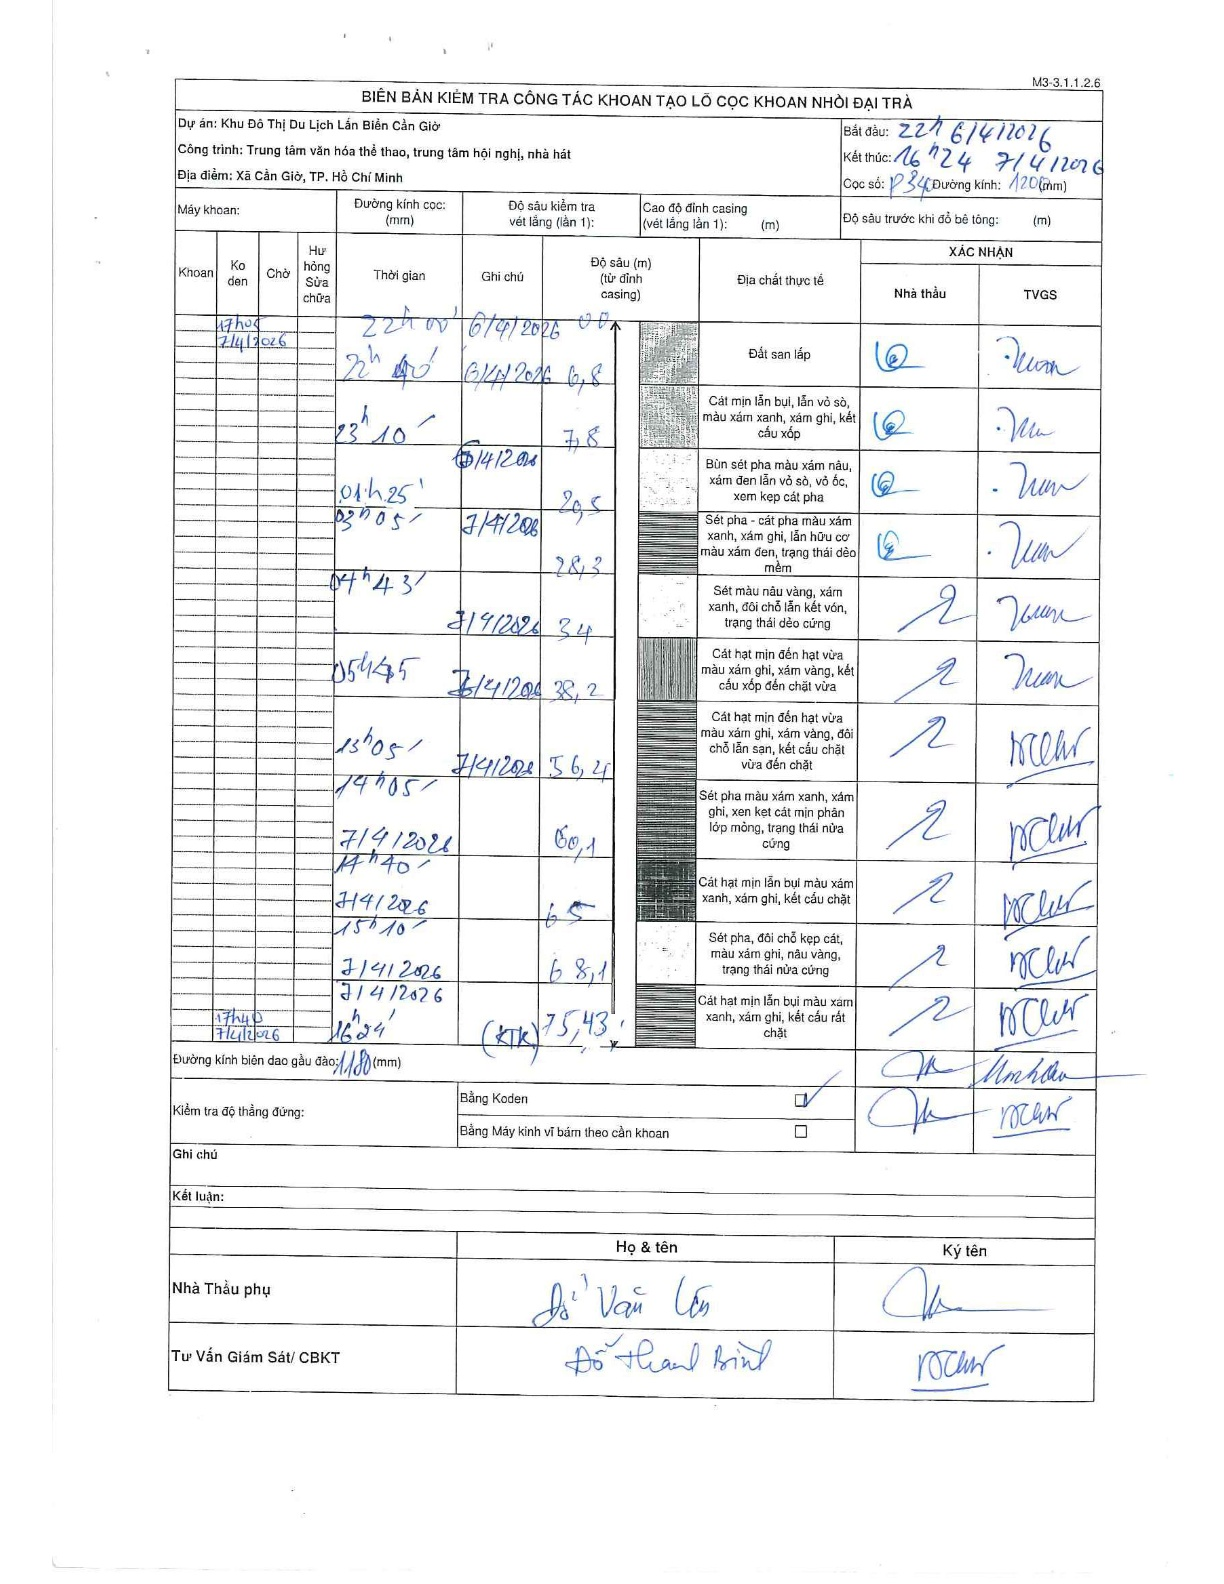 M3-3.1.1.2.6
BIÊN BẢN KIỂM TRA CÔNG TÁC KHOAN TẠO LỖ CỌC KHOAN NHỒI ĐẠI TRÀ
Dự án: Khu Đô Thị Du Lịch Lấn Biển Cần Giờ
Công trình: Trung tâm văn hóa thể thao, trung tâm hội nghị, nhà hát
Địa điểm: Xã Cần Giờ, TP. Hồ Chí Minh
Bắt đầu: 22h 6/4/2026
Kết thúc: 16h24 7/4/2026
Cọc số: P34 Đường kính: 1200 (mm)
Máy khoan:
Đường kính cọc: (mm)
Độ sâu kiểm tra vét lắng (lần 1):
Cao độ đỉnh casing (vét lắng lần 1): (m)
Độ sâu trước khi đổ bê tông: (m)
Khoan
Ko den
Chờ
Hư hỏng Sửa chữa
Thời gian
Ghi chú
Độ sâu (m) (từ đỉnh casing)
Địa chất thực tế
XÁC NHẬN
Nhà thầu
TVGS
17h05
7/4/2026
22h00' 6/4/2026 00
22h 40' 6/4/2026 6,8
Đất san lấp
23h10' 7,8
Cát mịn lẫn bụi, lẫn vỏ sò,
màu xám xanh, xám ghi, kết
cấu xốp
6/4/2026
01h25' 20,5
Bùn sét pha màu xám nâu,
xám đen lẫn vỏ sò, vỏ ốc,
xem kẹp cát pha
03h05' 7/4/2026 28,3
Sét pha - cát pha màu xám
xanh, xám ghi, lẫn hữu cơ
màu xám đen, trạng thái dẻo
mềm
04h43' 7/4/2026 34
Sét màu nâu vàng, xám
xanh, đôi chỗ lẫn kết vón,
trạng thái dẻo cứng
05h45 7/4/2026 38,2
Cát hạt mịn đến hạt vừa
màu xám ghi, xám vàng, kết
cấu xốp đến chặt vừa
13h05' 7/4/2026 56,4
Cát hạt mịn đến hạt vừa
màu xám ghi, xám vàng, đôi
chỗ lẫn sạn, kết cấu chặt
vừa đến chặt
14h05'
7/4/2026 60,1
Sét pha màu xám xanh, xám
ghi, xen kẹt cát mịn phân
lớp mỏng, trạng thái nửa
cứng
14h40'
7/4/2026 65
Cát hạt mịn lẫn bụi màu xám
xanh, xám ghi, kết cấu chặt
15h10'
7/4/2026 68,1
Sét pha, đôi chỗ kẹp cát,
màu xám ghi, nâu vàng,
trạng thái nửa cứng
7/4/2026
16h24' (KTK) 75,43
Cát hạt mịn lẫn bụi màu xám
xanh, xám ghi, kết cấu rất
chặt
17h40
7/4/2026
Đường kính biên dao gầu đào: 1180 (mm)
Kiểm tra độ thẳng đứng:
Bằng Koden
Bằng Máy kinh vĩ bám theo cần khoan
Ghi chú
Kết luận:
Họ & tên
Ký tên
Nhà Thầu phụ
Tư Vấn Giám Sát/ CBKT
Đỗ Thanh Bình